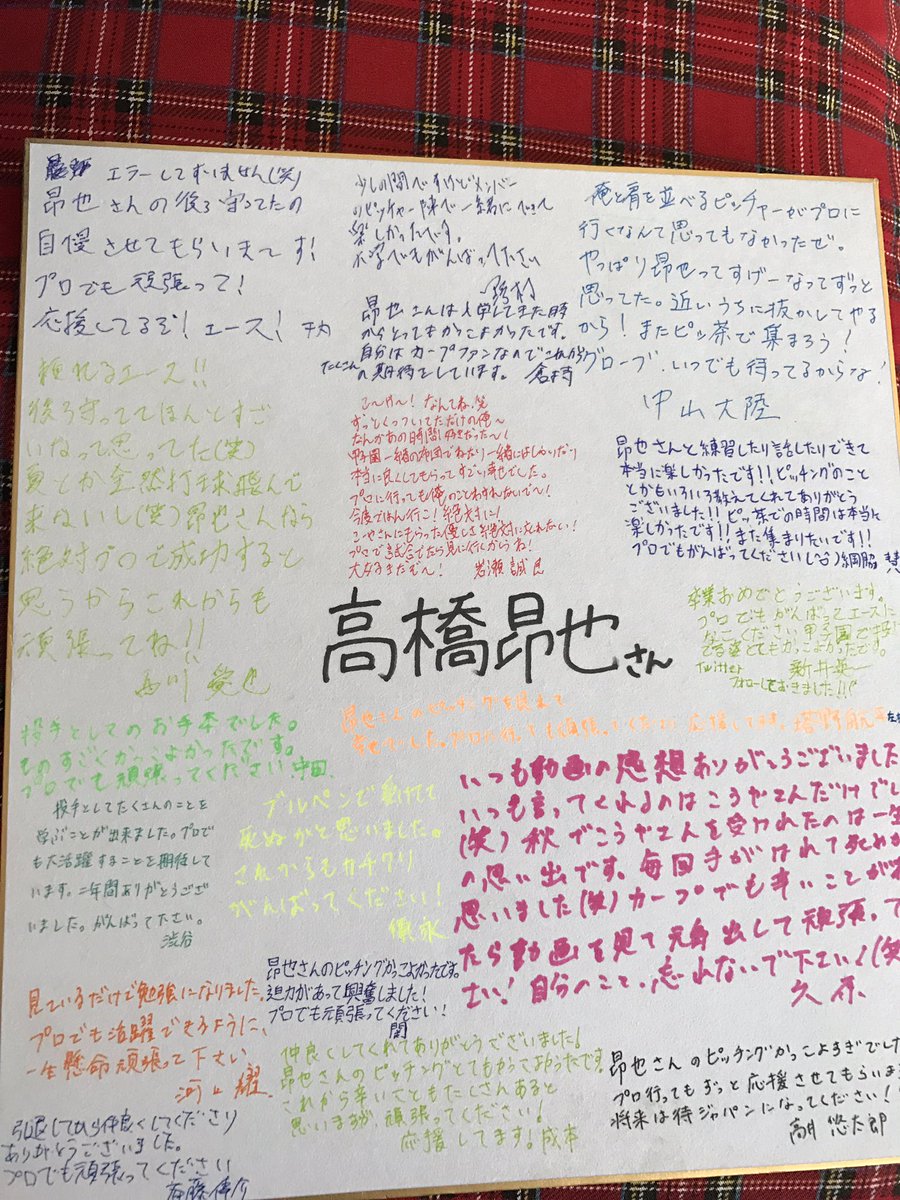 エラーしてすいません(笑)
昂也さんの後ろ守ってたの
自慢させてもらいます!
プロでも頑張って!
応援してるぞ!エース!
少しの間ですけどメンバー
のピッチャー陣で一緒にできて
楽しかったです。
大学でもがんばってください
野村
俺と肩を並べるピッチャーがプロに
行くなんて思ってもなかったぜ。
やっぱり昂也ってすげーなってずっと
思ってた。近いうちに抜かしてやる
から!またピッ茶で集まろう!
グローブ、いつでも待ってるからな!
中山大陸
昂也さんは入学してきた時
からとってもかっこよかったです。
自分はカープファンなのでこれから
の期待をしています。倉持
頼れるエース!!
後ろ守っててほんとすご
いなって思ってた(笑)
夏とか全然打球飛んで
来ないし(笑)昂也さんなら
絶対プロで成功すると
思うからこれからも
頑張ってね!!
西川 愛也
こ〜や〜!なんてね。笑
ずっとくっついてただけの俺〜
なんかあの時間好きだった〜!
甲子園一緒の布団でねたり一緒にはしゃいだり
本当に良くしてもらってすごい幸せでした。
プロに行っても俺のことわすれないで〜!
今度ごはん行こ!絶対に!
こやさんにもらった優しさ絶対に忘れない!
プロで試合でたら見に行くからね!
大好きだぞ〜!
岩瀬誠良
昂也さんと練習したり話したりできて
本当に楽しかったです!!ピッチングのこと
とかもいろいろ教えてくれてありがとう
ございました!!ピッ茶での時間は本当に
楽しかったです!!また集まりたいです!!
プロでもがんばってください(^^)綱脇 慧
卒業おめでとうございます。
プロでもがんばってエースに
なってください甲子園で投げ
てる姿とてもかっこよかったです。
Twitter
フォローしておきました!!
高橋昂也さん
昂也さんのピッチングを見えて
幸せでした。プロに行っても頑張ってください応援してます。
投手としてのお手本でした。
ものすごくかっこよかったです。
プロでも頑張ってください 中田
投手としてたくさんのことを
学ぶことが出来ました。プロで
も大活躍することを期待して
います。二年間ありがとうござ
いました。がんばって下さい。
渋谷
ブルペンで受けてて
死ぬかと思いました。
これからもガチクソ
がんばってください!
徳永
いつも動画の感想ありがとうございました
いつも言ってくれるのはこうやさんだけでし
(笑)秋でこうやさんを受けれたのは一生
の思い出です。毎回手がはれて死ぬか
思いました(笑)カープでも辛いことが
たら動画を見て元気出して頑張って
さい!自分のこと、忘れないで下さい!(笑
久保
見ているだけで勉強になりました。
プロでも活躍できるように、
一生懸命頑張って下さい。
河上 耀
昂也さんのピッチングかっこよかったです。
迫力があって興奮しました!
プロでも頑張ってください!
関
仲良くしてくれてありがとうございました!
昂也さんのピッチングとてもかっこよかったです
これから辛いこともたくさんあると
思いますが、頑張ってください!
応援してます。成本
昂也さんのピッチングかっこよすぎでし
プロ行ってもずっと応援させてもらいま
将来は侍ジャパンになってください!
高井 悠太郎
引退してから仲良くしてくださり
ありがとうございました。
プロでも頑張ってください